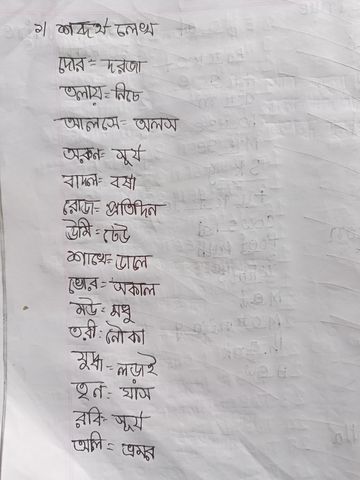 ১। শব্দার্থ লেখ
দোর = দরজা
তলায় = নিচে
আলসে = অলস
অরুন = সূর্য
বাদল = বর্ষা
রোজ = প্রতিদিন
উর্মি = ঢেউ
শাখে = ডালে
ভোর = সকাল
মউ = মধু
তরী = নৌকা
যুদ্ধ = লড়াই
তৃন = ঘাস
রবি = সূর্য
অলি = ভ্রমর